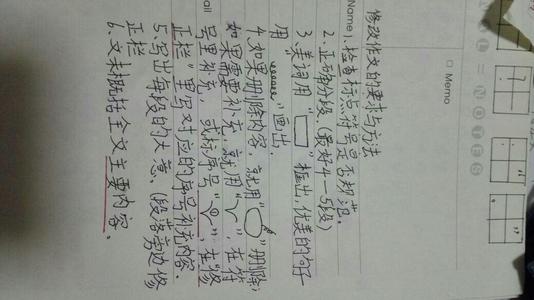 □ Memo
修改作文的要求与方法
Name
1、检查标点符号是否规范。
2.正确分段。(最好4—5段)
3、美词用“▭”框出,优美的句子
用“﹏﹏”画出.
4.如果删除内容,就用“ ”删除;
如果需要补充,就用“﹀”,在符
ail
号里补充,或标序号“ ”,在“修
正栏”里写对应的序号补充内容.
5、写出每段的大意、(段落旁边修
正栏
6、文末概括全文主要内容。